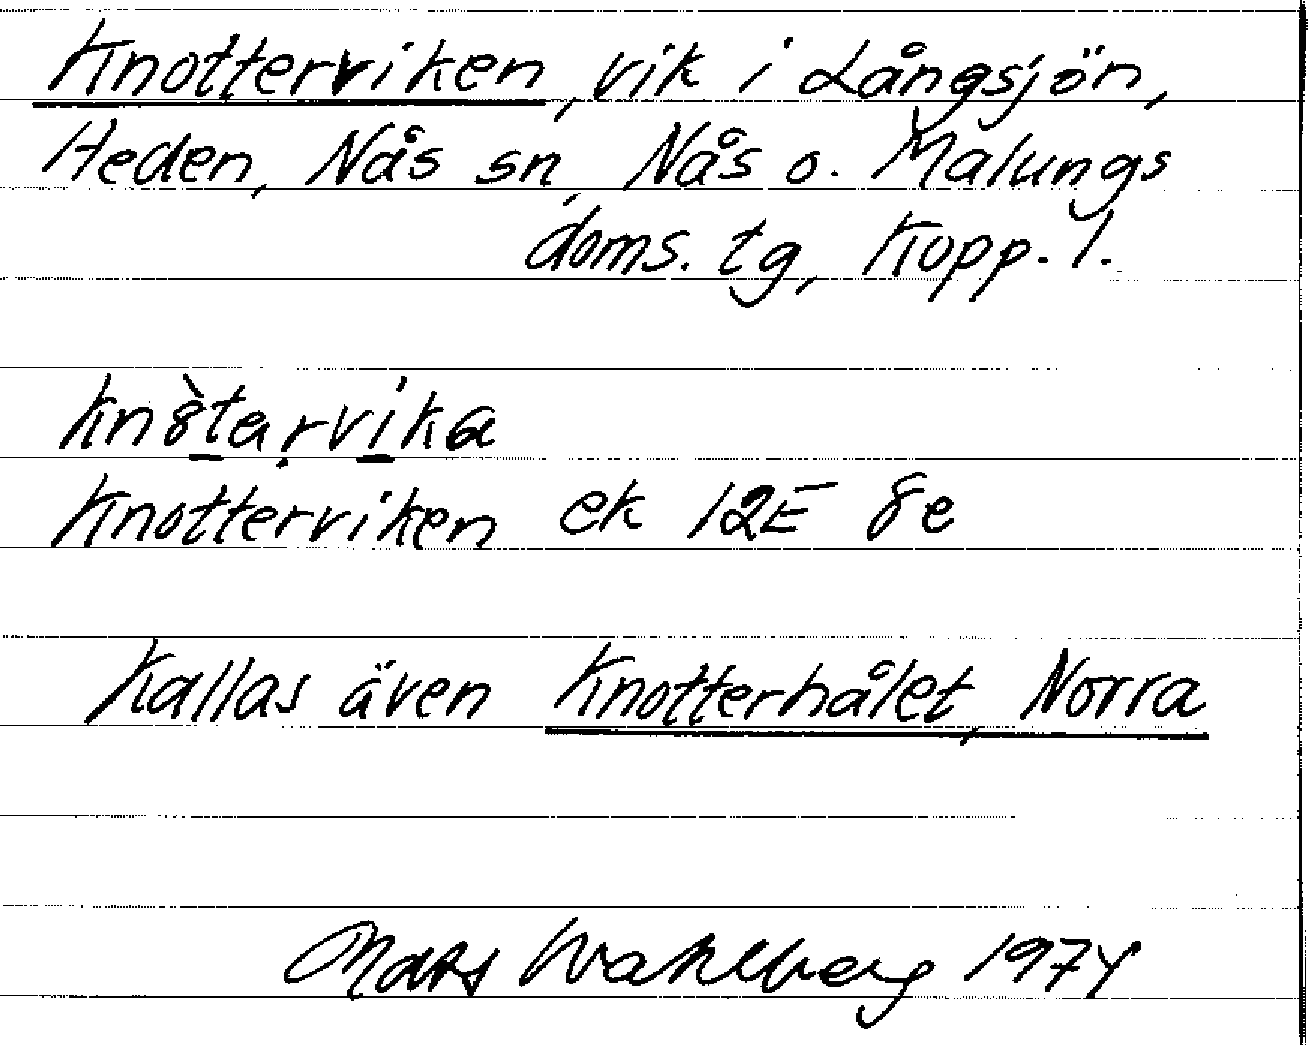 Knotterviken, vik i Långsjön,
Heden, Nås sn, Nås o. Malungs
doms. tg, Kopp. l.
kn8̀t̲arvi̲ka
Knotterviken ek 12E 8e
Kallas även Knotterhålet, Norra
Mats Wahlberg 1974